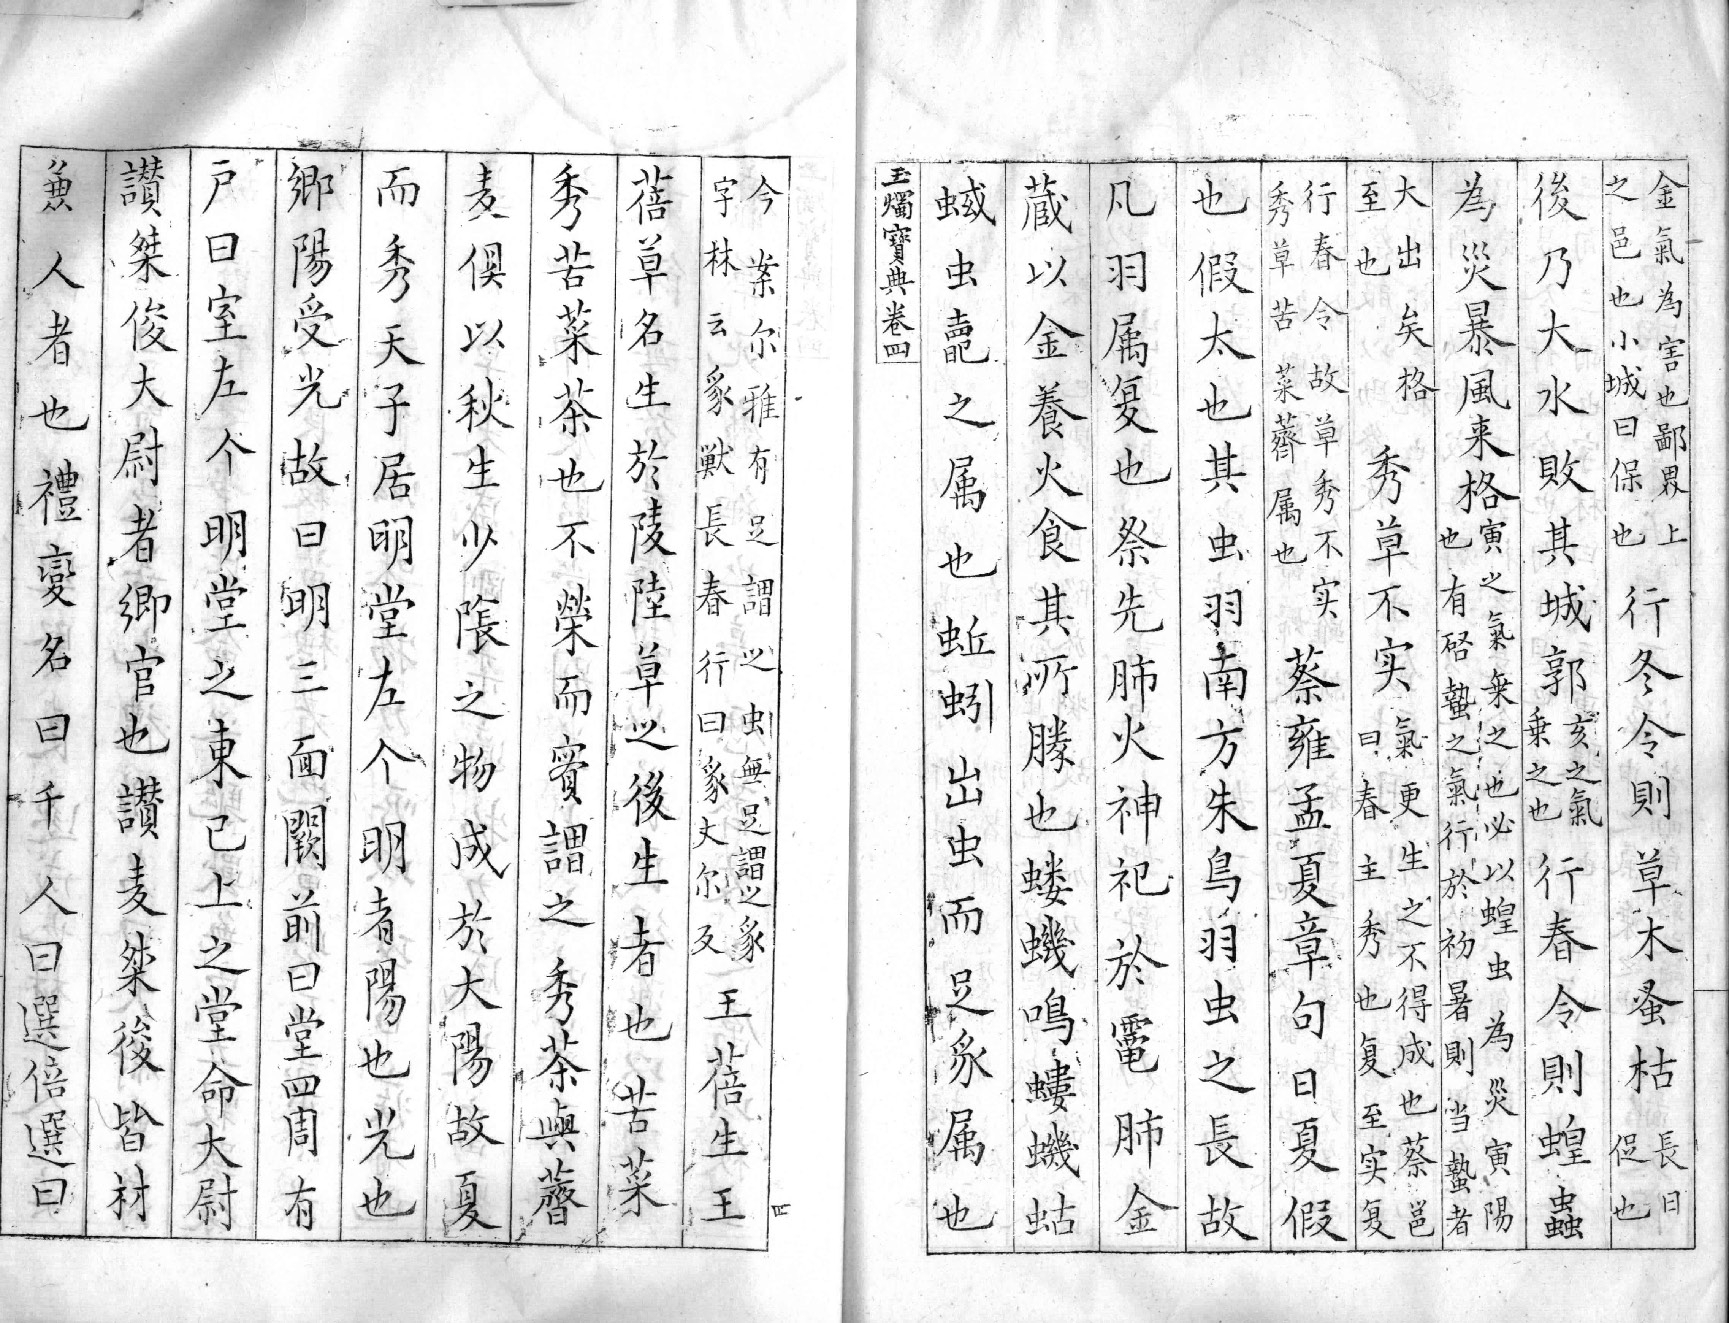 金氣為害也鄙界上
之邑也小城曰保也
行冬令則草木蚤枯
長日
促也
後乃大水敗其城郭
亥之氣
乗之也
行春令則蝗蟲
為災暴風来格
寅之氣乗之也必以蝗虫為災寅陽
也有啓蟄之氣行於初暑則当蟄者
大出矣格
至也
秀草不实
氣更生之不得成也蔡邕
曰春主秀也夏至实夏
行春令故草秀不实
秀草苦菜薺属也
蔡雍孟夏章句曰夏假
也假太也其虫羽南方朱鳥羽虫之長故
凡羽属夏也祭先肺火神祀於竈肺金
蔵以金養火食其所勝也蝼蟣鳴螻蟣蛄
蜮虫鼃之属也蚯蚓出虫而足豸属也
玉燭寶典卷四
今案尔雅有足謂之虫無足謂之豸
字林云豸獣長春行曰豸丈尔反
王萯生王
萯草名生於陵陸草之後生者也苦菜
秀苦菜荼也不榮而實謂之秀荼與薺
麦俱以秋生少陰之物成於大陽故夏
而秀天子居明堂左个明者陽也光也
鄉陽受光故曰明三面闕前曰堂四周有
户曰室左个明堂之東己上之堂命大尉
讃桀俊大尉者卿官也讃麦桀後皆材
兼人者也禮變名曰千人曰選倍選曰
四